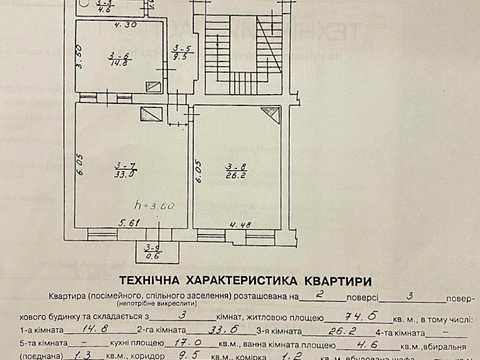 3-3
4.6
4.30
3.50
3-6
14.8
3-5
9.5
6.05
3-7
33.0
6.05
3-8
26.2
h=3.60
5.61
4.48
3-9
0.6
ТЕХНІЧНА ХАРАКТЕРИСТИКА КВАРТИРИ
Квартира (посімейного, спільного заселення) розташована на 2 поверсі 3 повер-
(непотрібне викреслити)
хового будинку та складається з 3 кімнат, житловою площею 74.6 кв. м., в тому числі:
1-а кімната 14.8 2-га кімната 33.6 3-я кімната 26.2 4-та кімната –
5-та кімната – кухні площею 17.0 кв. м., ванна кімната площею 4.6 кв.м., вбиральня
(поєднана) 1.3 кв. м., коридор 9.5 кв. м., комірка 1.2 кв. м., вбудована шафа